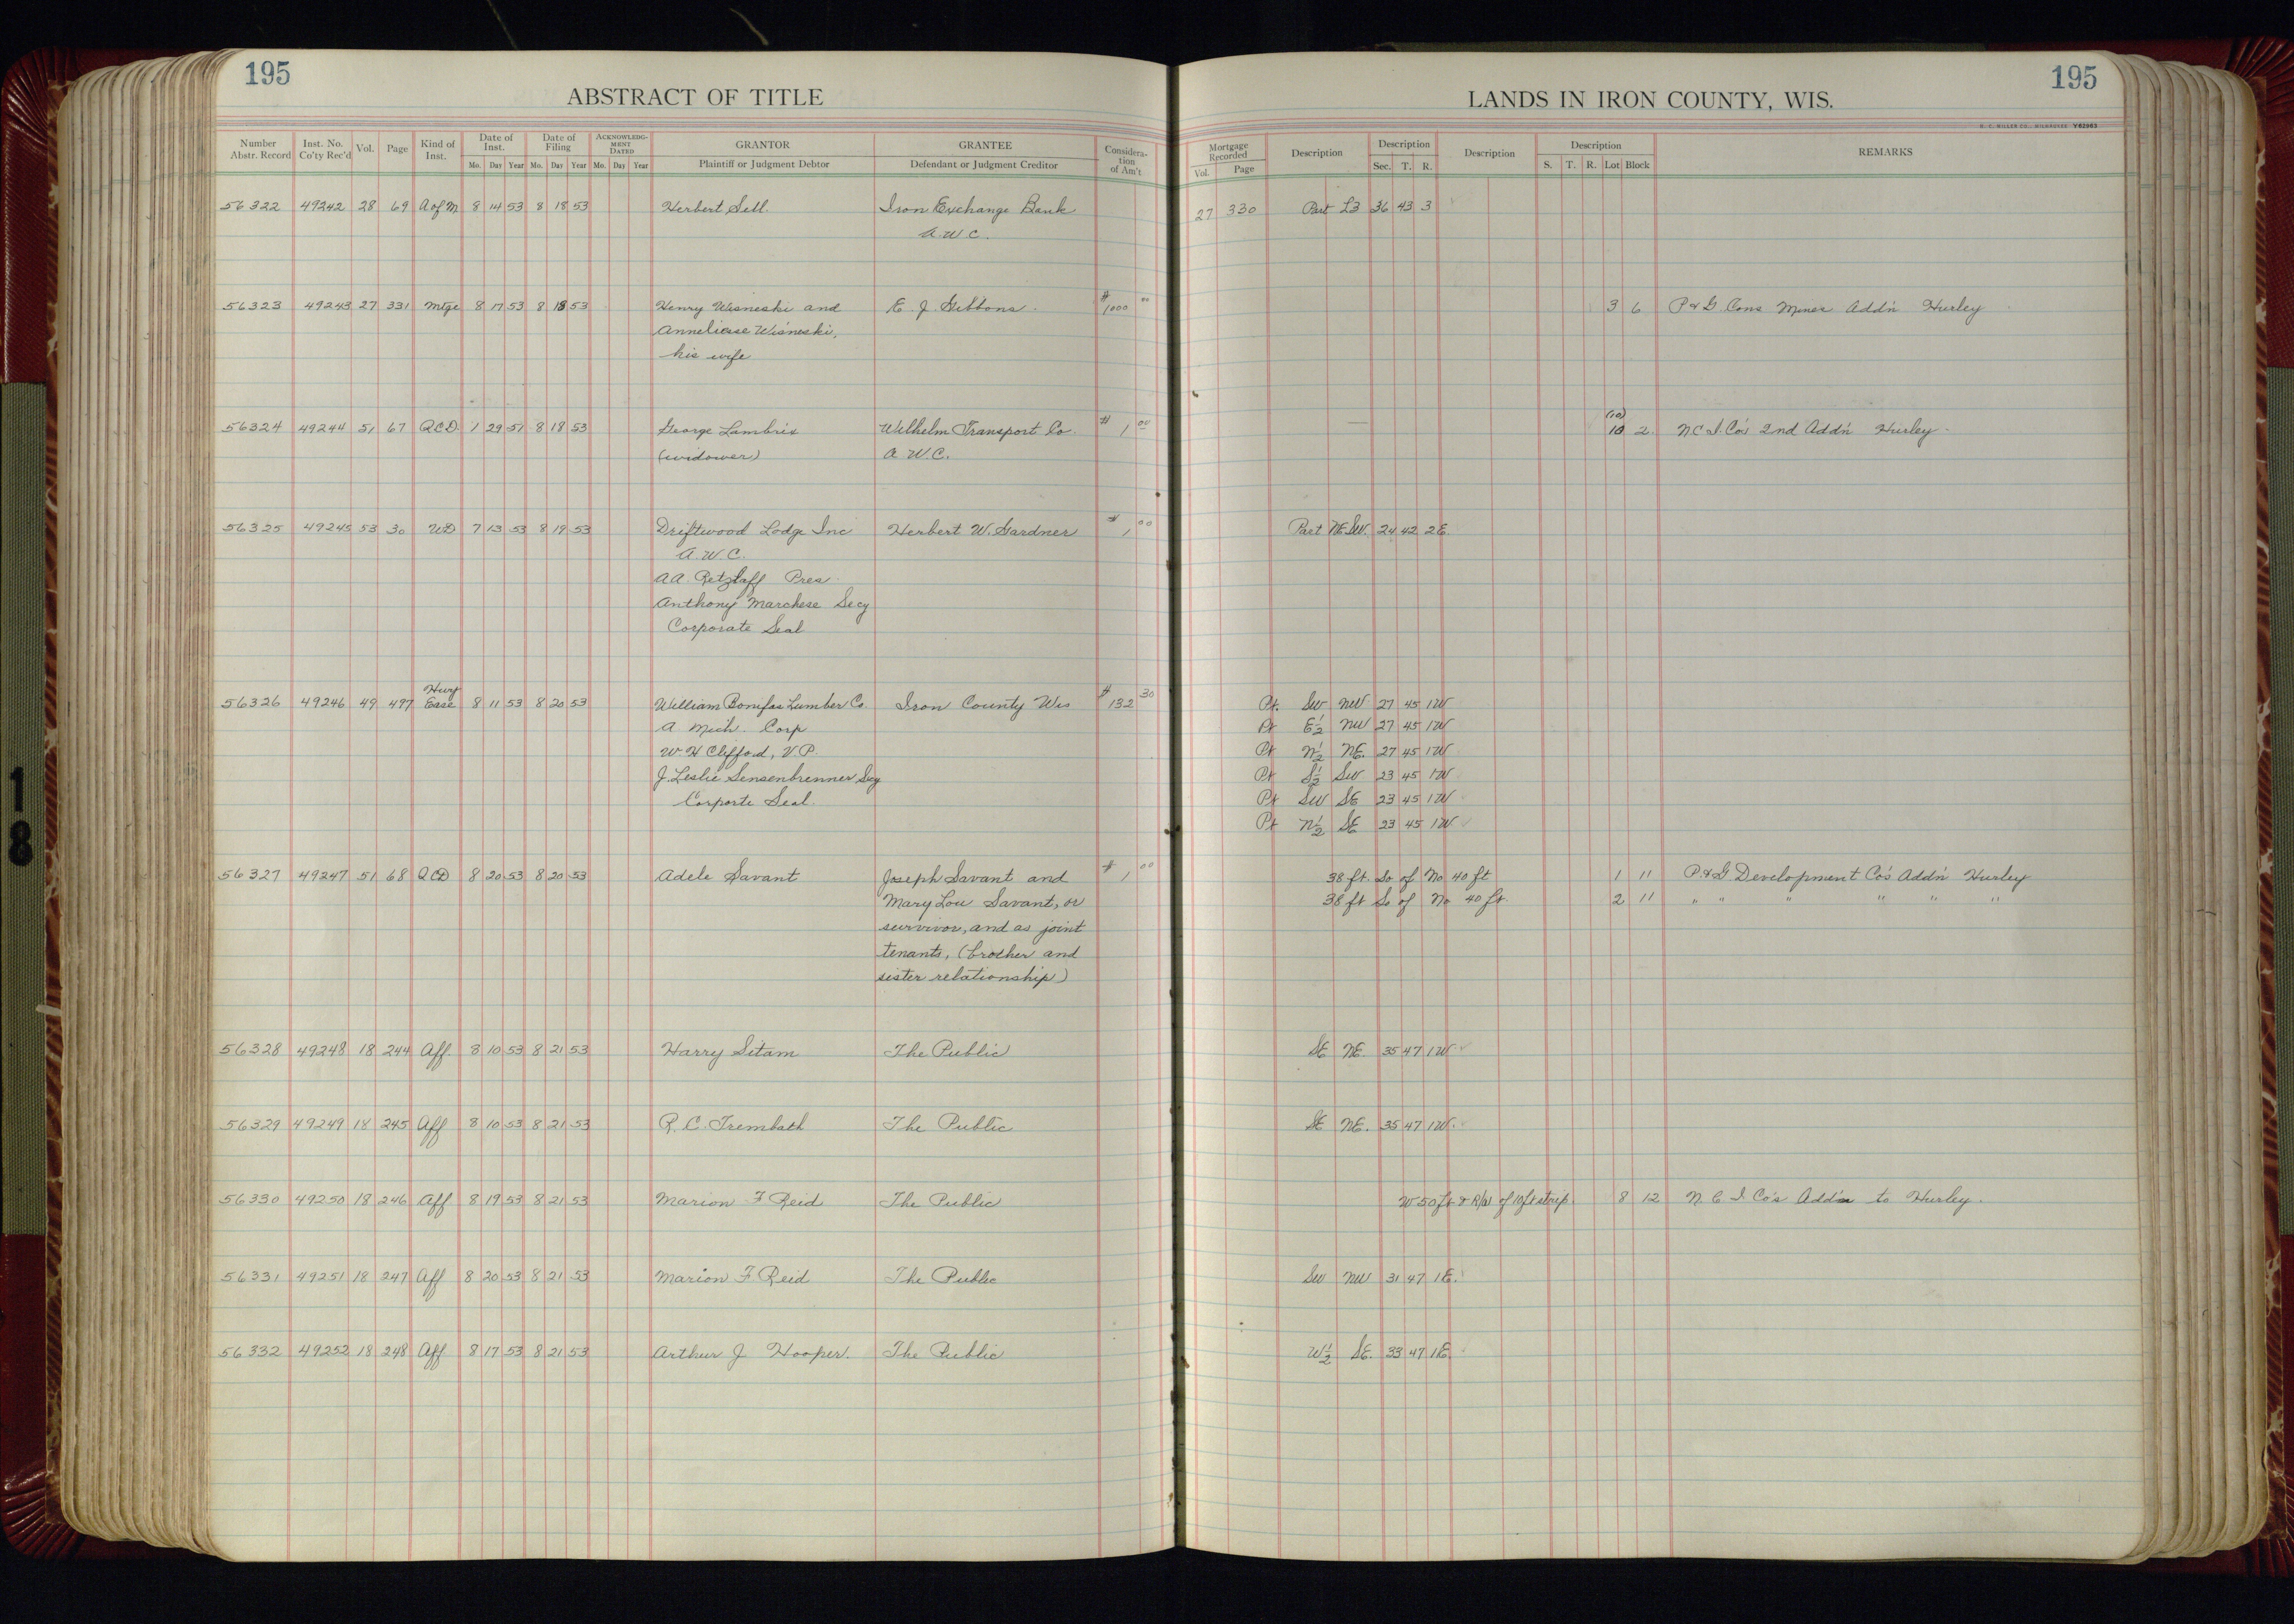 195
195
ABSTRACT OF TITLE
LANDS IN IRON COUNTY, WIS.
H. C. MILLER CO., MILWAUKEE Y62963
Number Abstr. Record Inst. No. Co'ty Rec'd Vol. Page Kind of Inst. Date of Inst. Mo. Day Year Date of Filing Mo. Day Year ACKNOWLEDGMENT DATED Mo. Day Year GRANTOR Plaintiff or Judgment Debtor GRANTEE Defendant or Judgment Creditor Consideration of Am't Mortgage Recorded Vol. Page Description Description Sec. T. R. Description Description S. T. R. Lot Block REMARKS
56322 49242 28 69 A of M 8 14 53 8 18 53 Herbert Sell. Iron Exchange Bank 27 330 Part L3 36 43 3
A.W.C.
56323 49243 27 331 Mtge 8 17 53 8 18 53 Henry Wisneski and E. J. Gibbons. $1000 00 3 6 P & G Cons Mines Add'n Hurley
Anneliesse Wisneski,
his wife
(10)
56324 49244 51 67 QCD 1 29 51 8 18 53 George Lambrix Wilhelm Transport Co. $1 00 10 2 N C I. Co's 2nd Add'n Hurley
(widower) A W.C.
56325 49245 53 30 WD 7 13 53 8 19 53 Driftwood Lodge Inc Herbert W. Gardner $1 00 Part NE SW. 24 42 2E.
A.W.C.
A.A. Retzlaff Pres.
Anthony Marchese Secy
Corporate Seal
Hwy
56326 49246 49 497 Ease 8 11 53 8 20 53 William Bonifas Lumber Co. Iron County Wis $132 30 Pt. SW NW 27 45 1W
A Mich. Corp Pt E½ NW 27 45 1W
W H Clifford, V.P. Pt N½ NE. 27 45 1W
J. Leslie Sensenbrenner Secy Pt S½ SW 23 45 1W
Corporte Seal. Pt SW SE 23 45 1W
Pt N½ SE 23 45 1W
56327 49247 51 68 QCD 8 20 53 8 20 53 Adele Savant Joseph Savant and $1 00 38 ft. So of No 40 ft 1 11 P. & G Development Co's Add'n Hurley
Mary Lou Savant, or 38 ft So of No 40 ft. 2 11 " " " " " "
survivor, and as joint
tenants, (brother and
sister relationship)
56328 49248 18 244 Aff. 8 10 53 8 21 53 Harry Sitam The Public SE NE. 35 47 1W.
56329 49249 18 245 Aff 8 10 53 8 21 53 R. C. Trembath The Public SE NE. 35 47 1W.
56330 49250 18 246 Aff 8 19 53 8 21 53 Marion F Reid The Public W 50 ft & R/W of 10 ft strip. 8 12 N. C. I. Co's Add'n to Hurley.
56331 49251 18 247 Aff 8 20 53 8 21 53 Marion F Reid The Public SW NW 31 47 1E.
56332 49252 18 248 Aff 8 17 53 8 21 53 Arthur J Hooper. The Public W½ SE. 33 47 1E.
18